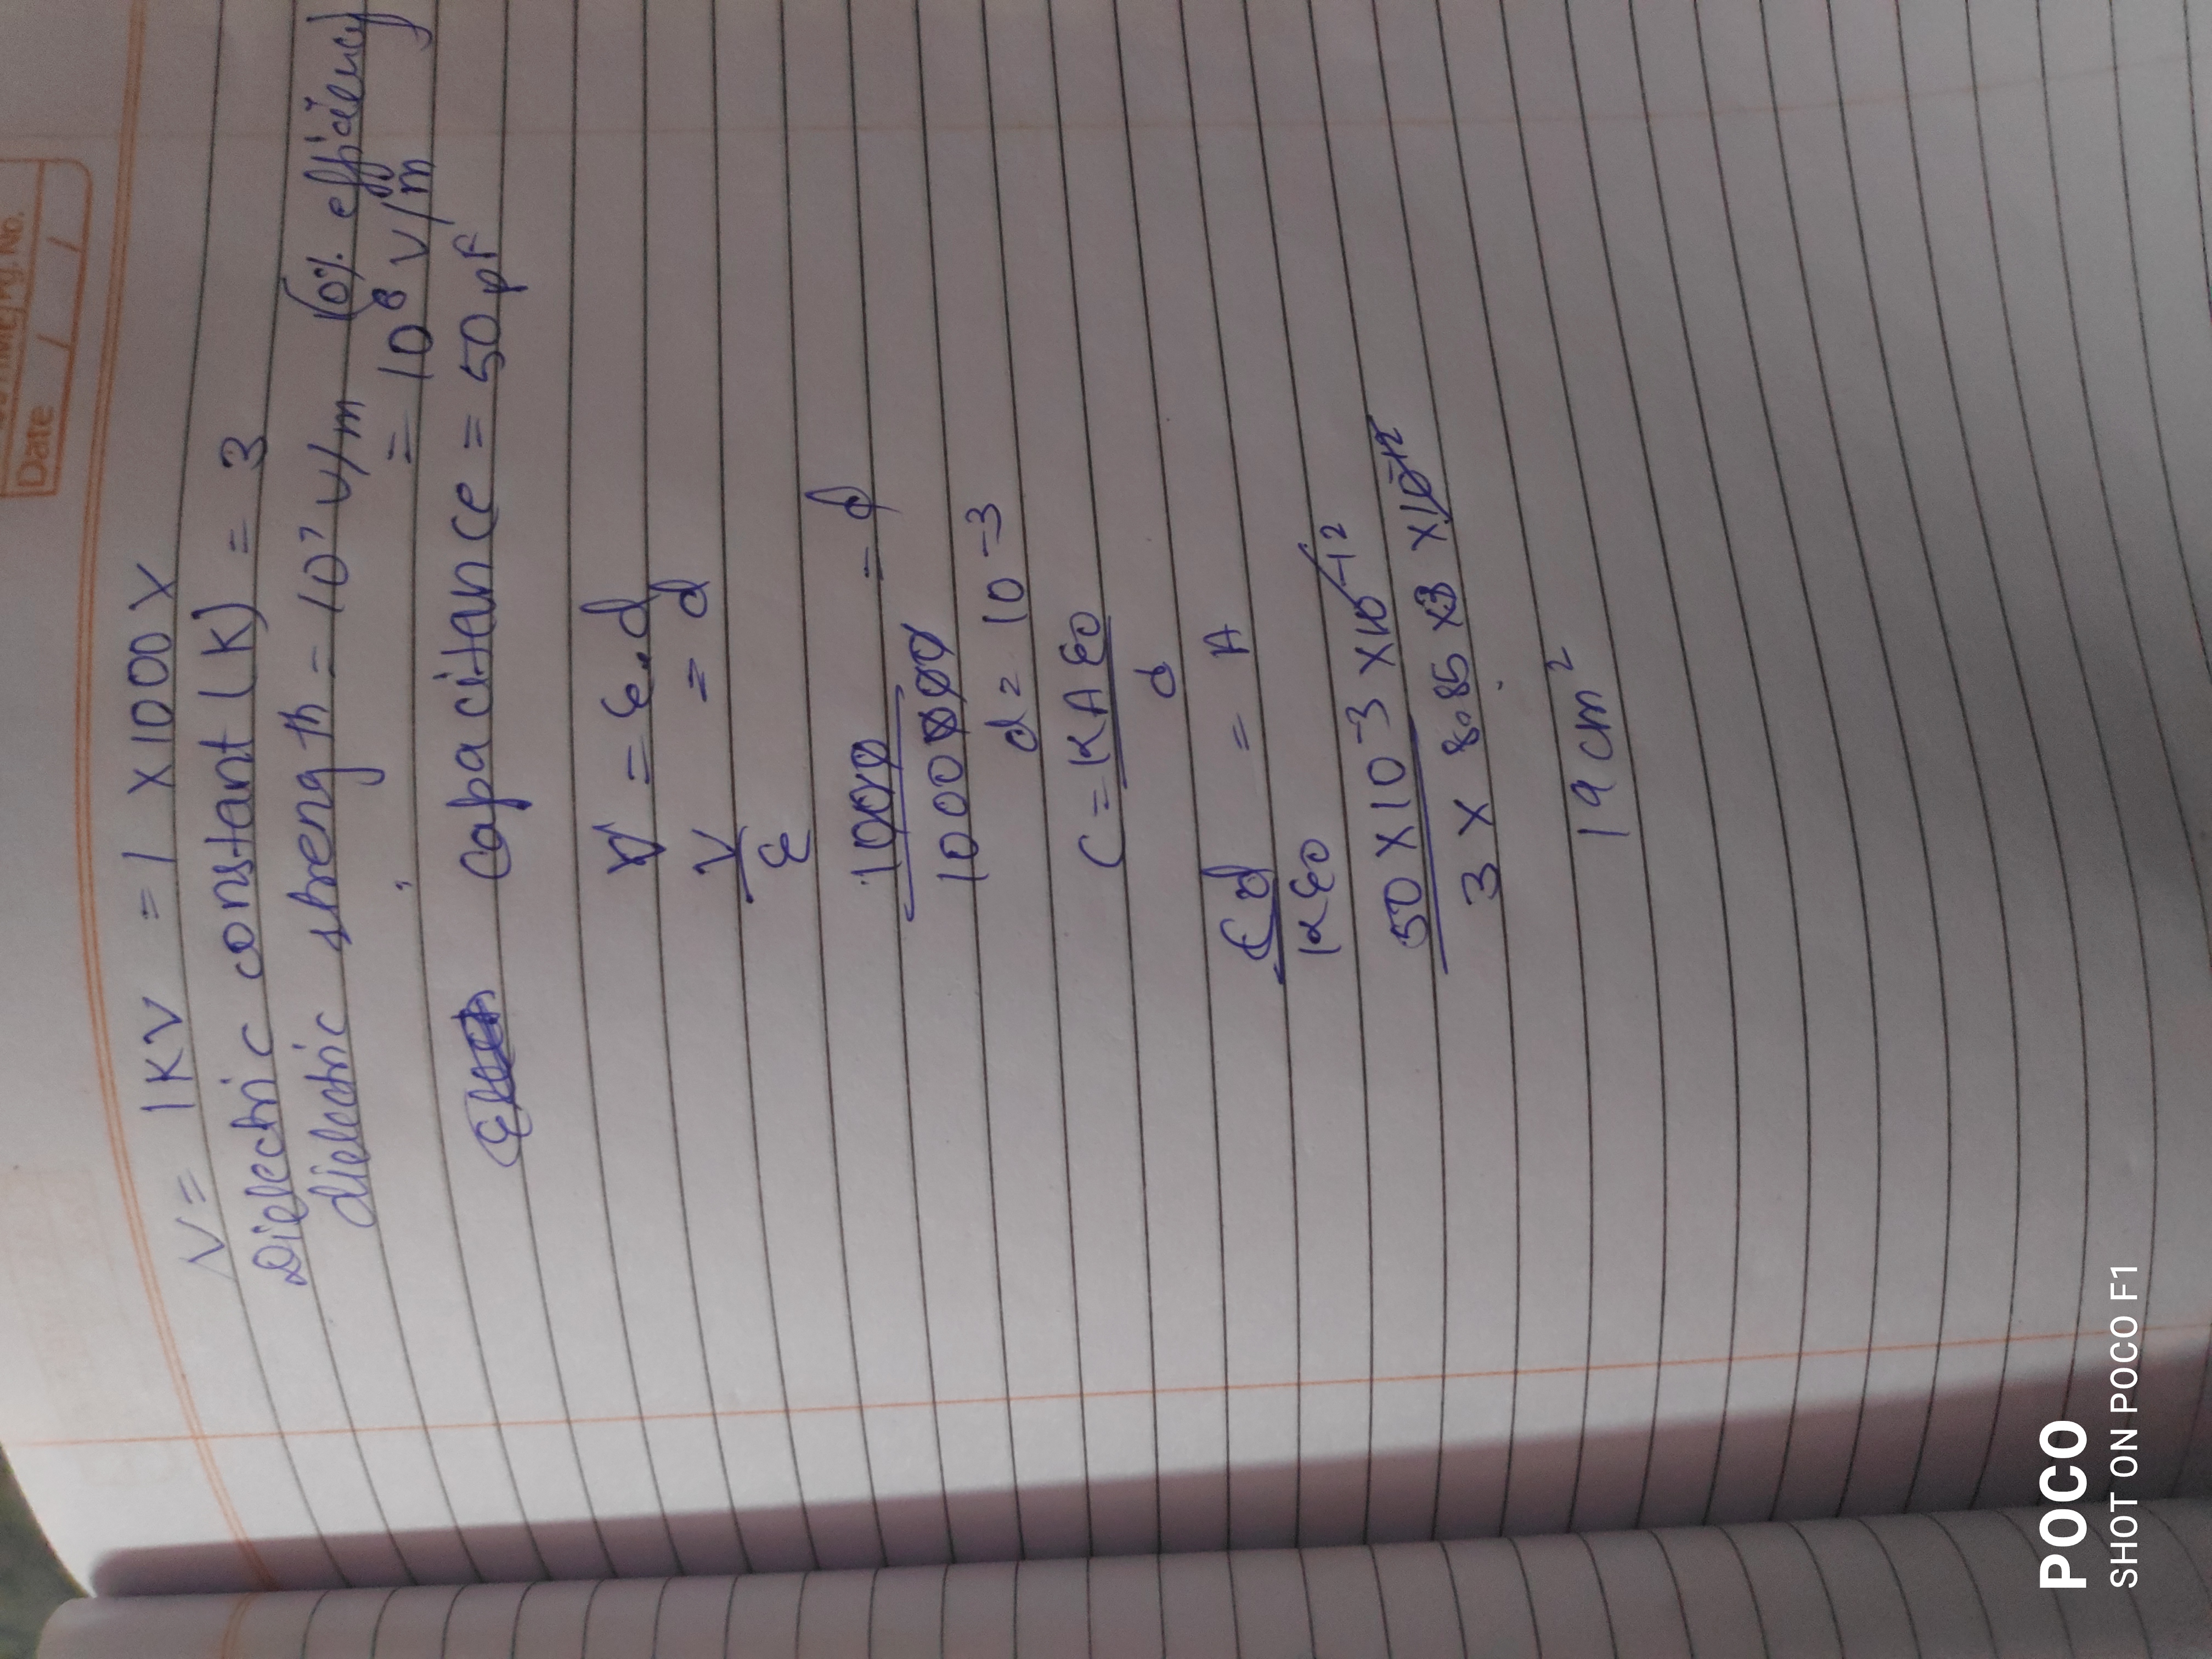 Pg. No.
Date / /
V = 1KV = 1 X1000 X
Dielectric constant (K) = 3
dielectric strength = 10⁷ V/m (0% efficiency)
= 10⁸ V/m
capacitance = 50 pF
V = ε.d
V/ε = d
1000/1000000 = d
d = 10⁻³
C = KAε0/d
Cd/Kε0 = A
50 X 10⁻³ X 10⁻¹²
3 X 8.85 X 3 X 10⁻¹²
19 cm²
POCO
SHOT ON POCO F1